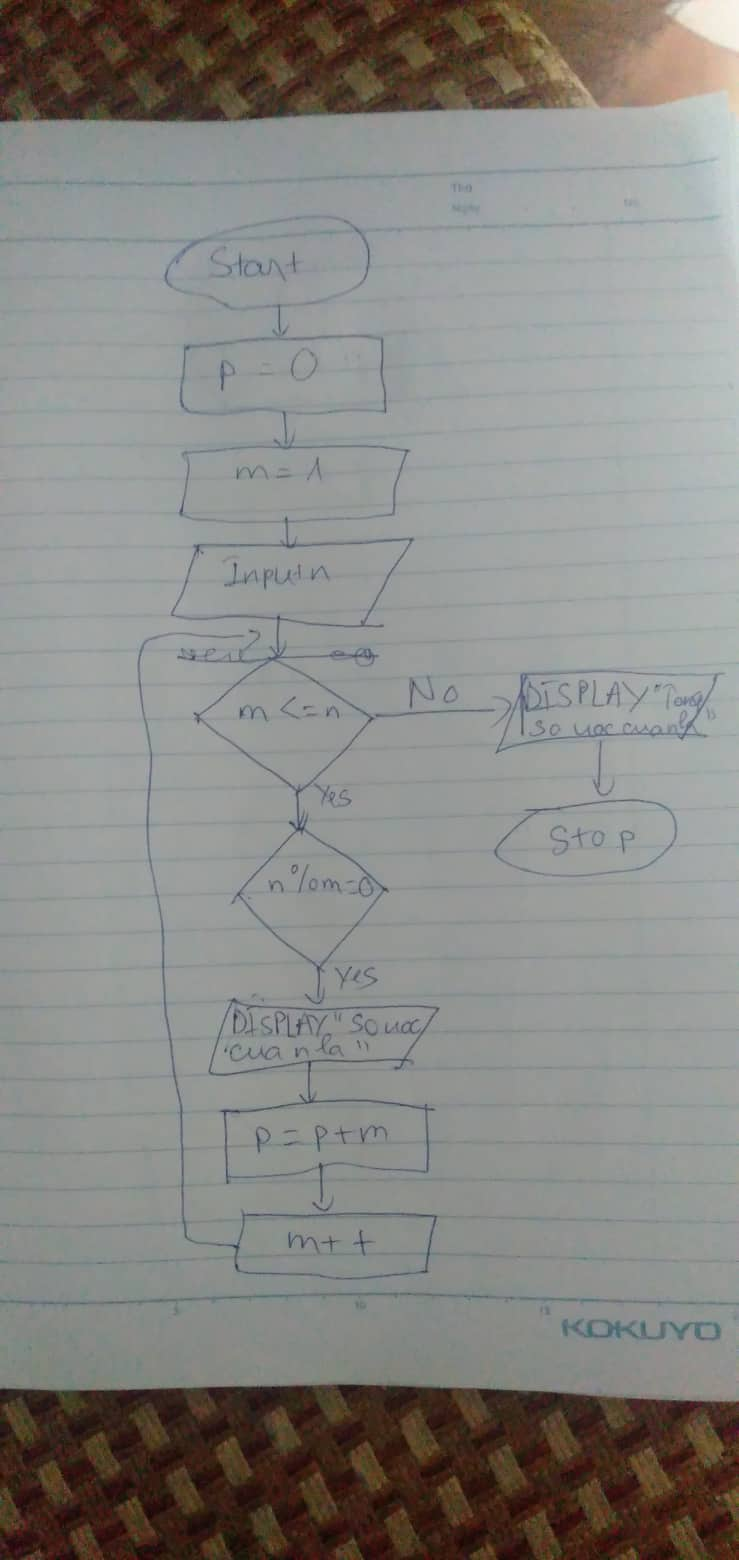 Thứ
Ngày
No.
Start
p = 0
m = 1
Input n
m <= n
No
DISPLAY "Tong
so uoc cua n la"
Yes
Stop
n % m = 0
Yes
DISPLAY "So uoc
cua n la"
p = p + m
m + +
5
10
15
KOKUYO